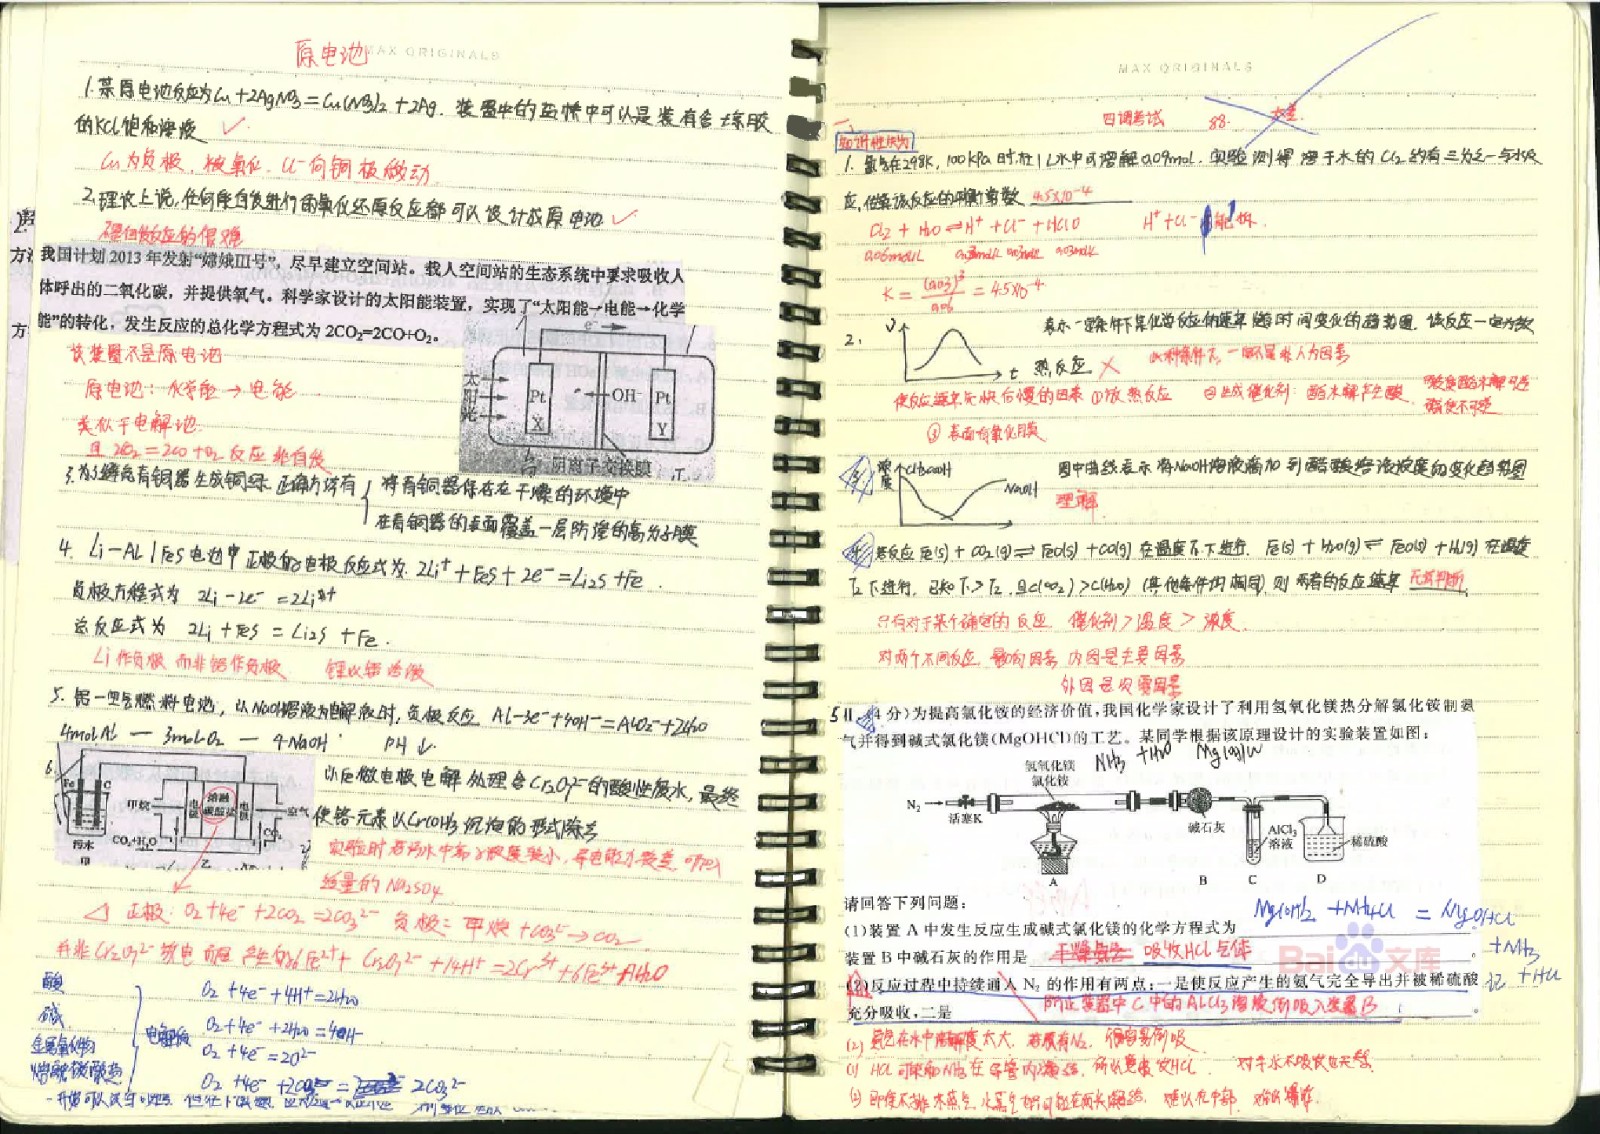 原电池
MAX ORIGINALS
1.某原电池反应为Cu+2AgNO3=Cu(NO3)2+2Ag.装置中的盐桥中可以是装有含琼胶
的KCl饱和溶液 ✓
Cu为负极,被氧化.Cl⁻向铜极移动.
2.理论上说,任何能自发进行的氧化还原反应都可以设计成原电池 ✓
方 我国计划 2013 年发射“嫦娥Ⅲ号”,尽早建立空间站。载人空间站的生态系统中要求吸收人
体呼出的二氧化碳,并提供氧气。科学家设计的太阳能装置,实现了“太阳能→电能→化学
方 能”的转化,发生反应的总化学方程式为 2CO₂=2CO+O₂。
该装置不是原电池
原电池:化学能→电能
类似于电解池.
且2CO₂=2CO+O₂反应非自发
e⁻
太阳光
Pt
X
OH⁻
Pt
Y
阴离子交换膜
3.为了避免青铜器生成铜绿.正确方法有 将青铜器保存在干燥的环境中
在青铜器的表面覆盖一层防渗的高分子膜
4. Li-Al|FeS电池中正极的电极反应式为 2Li⁺+FeS+2e⁻=Li2S+Fe.
负极方程式为 2Li-2e⁻=2Li⁺
总反应式为 2Li+FeS=Li2S+Fe.
Li作负极而非铝作负极
5. 铝-空气燃料电池,以NaOH溶液为电解液时,负极反应 Al-3e⁻+4OH⁻=AlO2⁻+2H2O
4molAl — 3molO2 — 4NaOH PH↓.
6.
Fe
C
污水
甲
甲烷
电极
熔融碳酸盐
电极
空气
CO₂+H₂O
CO₂
乙
以Fe做电极电解处理含Cr2O7²⁻的酸性废水,最终
使铬元素以Cr(OH)3沉淀的形式除去
实验时若污水中离子浓度较小,导电能力较差.可加入
适量的Na2SO4
△ 正极:O2+4e⁻+2CO2=2CO3²⁻ 负极:甲烷+CO3²⁻→CO2
酸
碱
电解质
O2+4e⁻+4H⁺=2H2O
O2+4e⁻+2H2O=4OH⁻
O2+4e⁻=2O²⁻
O2+4e⁻+2CO2=2CO3²⁻
熔融碳酸盐
MAX ORIGINALS
四调考试 88.
一、知识性缺欠
1. 氯气在298K,100kPa时,在1L水中可溶解0.09mol.实验测得溶于水的Cl2约有三分之一与水反
应,估算该反应的平衡常数 4.5×10⁻⁴
Cl2+H2O⇌H⁺+Cl⁻+HClO
0.06mol/L 0.03mol/L 0.03mol/L 0.03mol/L
K=(0.03)³/0.06=4.5×10⁻⁴
2. υ t 表示一定条件下某化学反应的速率随时间变化的趋势图,该反应一定为放
热反应 ✗
使反应速率先快后慢的因素 ①放热反应 ②生成催化剂:酯水解产生酸.
③表面有氧化膜
浓度 CH3COOH NaOH 图中曲线表示将NaOH溶液滴加到醋酸溶液浓度的变化趋势图
理解
若反应Fe(s)+CO2(g)⇌FeO(s)+CO(g)在温度T1下进行.Fe(s)+H2O(g)⇌FeO(s)+H2(g)在温度
T2下进行,已知T1>T2,且C(CO2)>C(H2O)(其他条件均相同)则两者的反应速率 无法判断.
只有对于某个确定的反应 催化剂>温度>浓度.
对两个不同反应,影响因素 内因是主要因素
外因是次要因素
5 Ⅱ.(4 分)为提高氯化铵的经济价值,我国化学家设计了利用氢氧化镁热分解氯化铵制氨
气并得到碱式氯化镁(MgOHCl)的工艺。某同学根据该原理设计的实验装置如图:
NH3 +H2O
氢氧化镁
氯化铵
N₂
活塞K
碱石灰
AlCl₃
溶液
稀硫酸
A
B
C
D
请回答下列问题:
Mg(OH)2+NH4Cl=MgOHCl
(1)装置 A 中发生反应生成碱式氯化镁的化学方程式为 。
+NH3
装置 B 中碱石灰的作用是 吸收HCl气体 。
Bai文库
(2)反应过程中持续通入 N₂ 的作用有两点:一是使反应产生的氨气完全导出并被稀硫酸
充分吸收,二是 防止装置中C中的AlCl3溶液倒吸入装置B 。